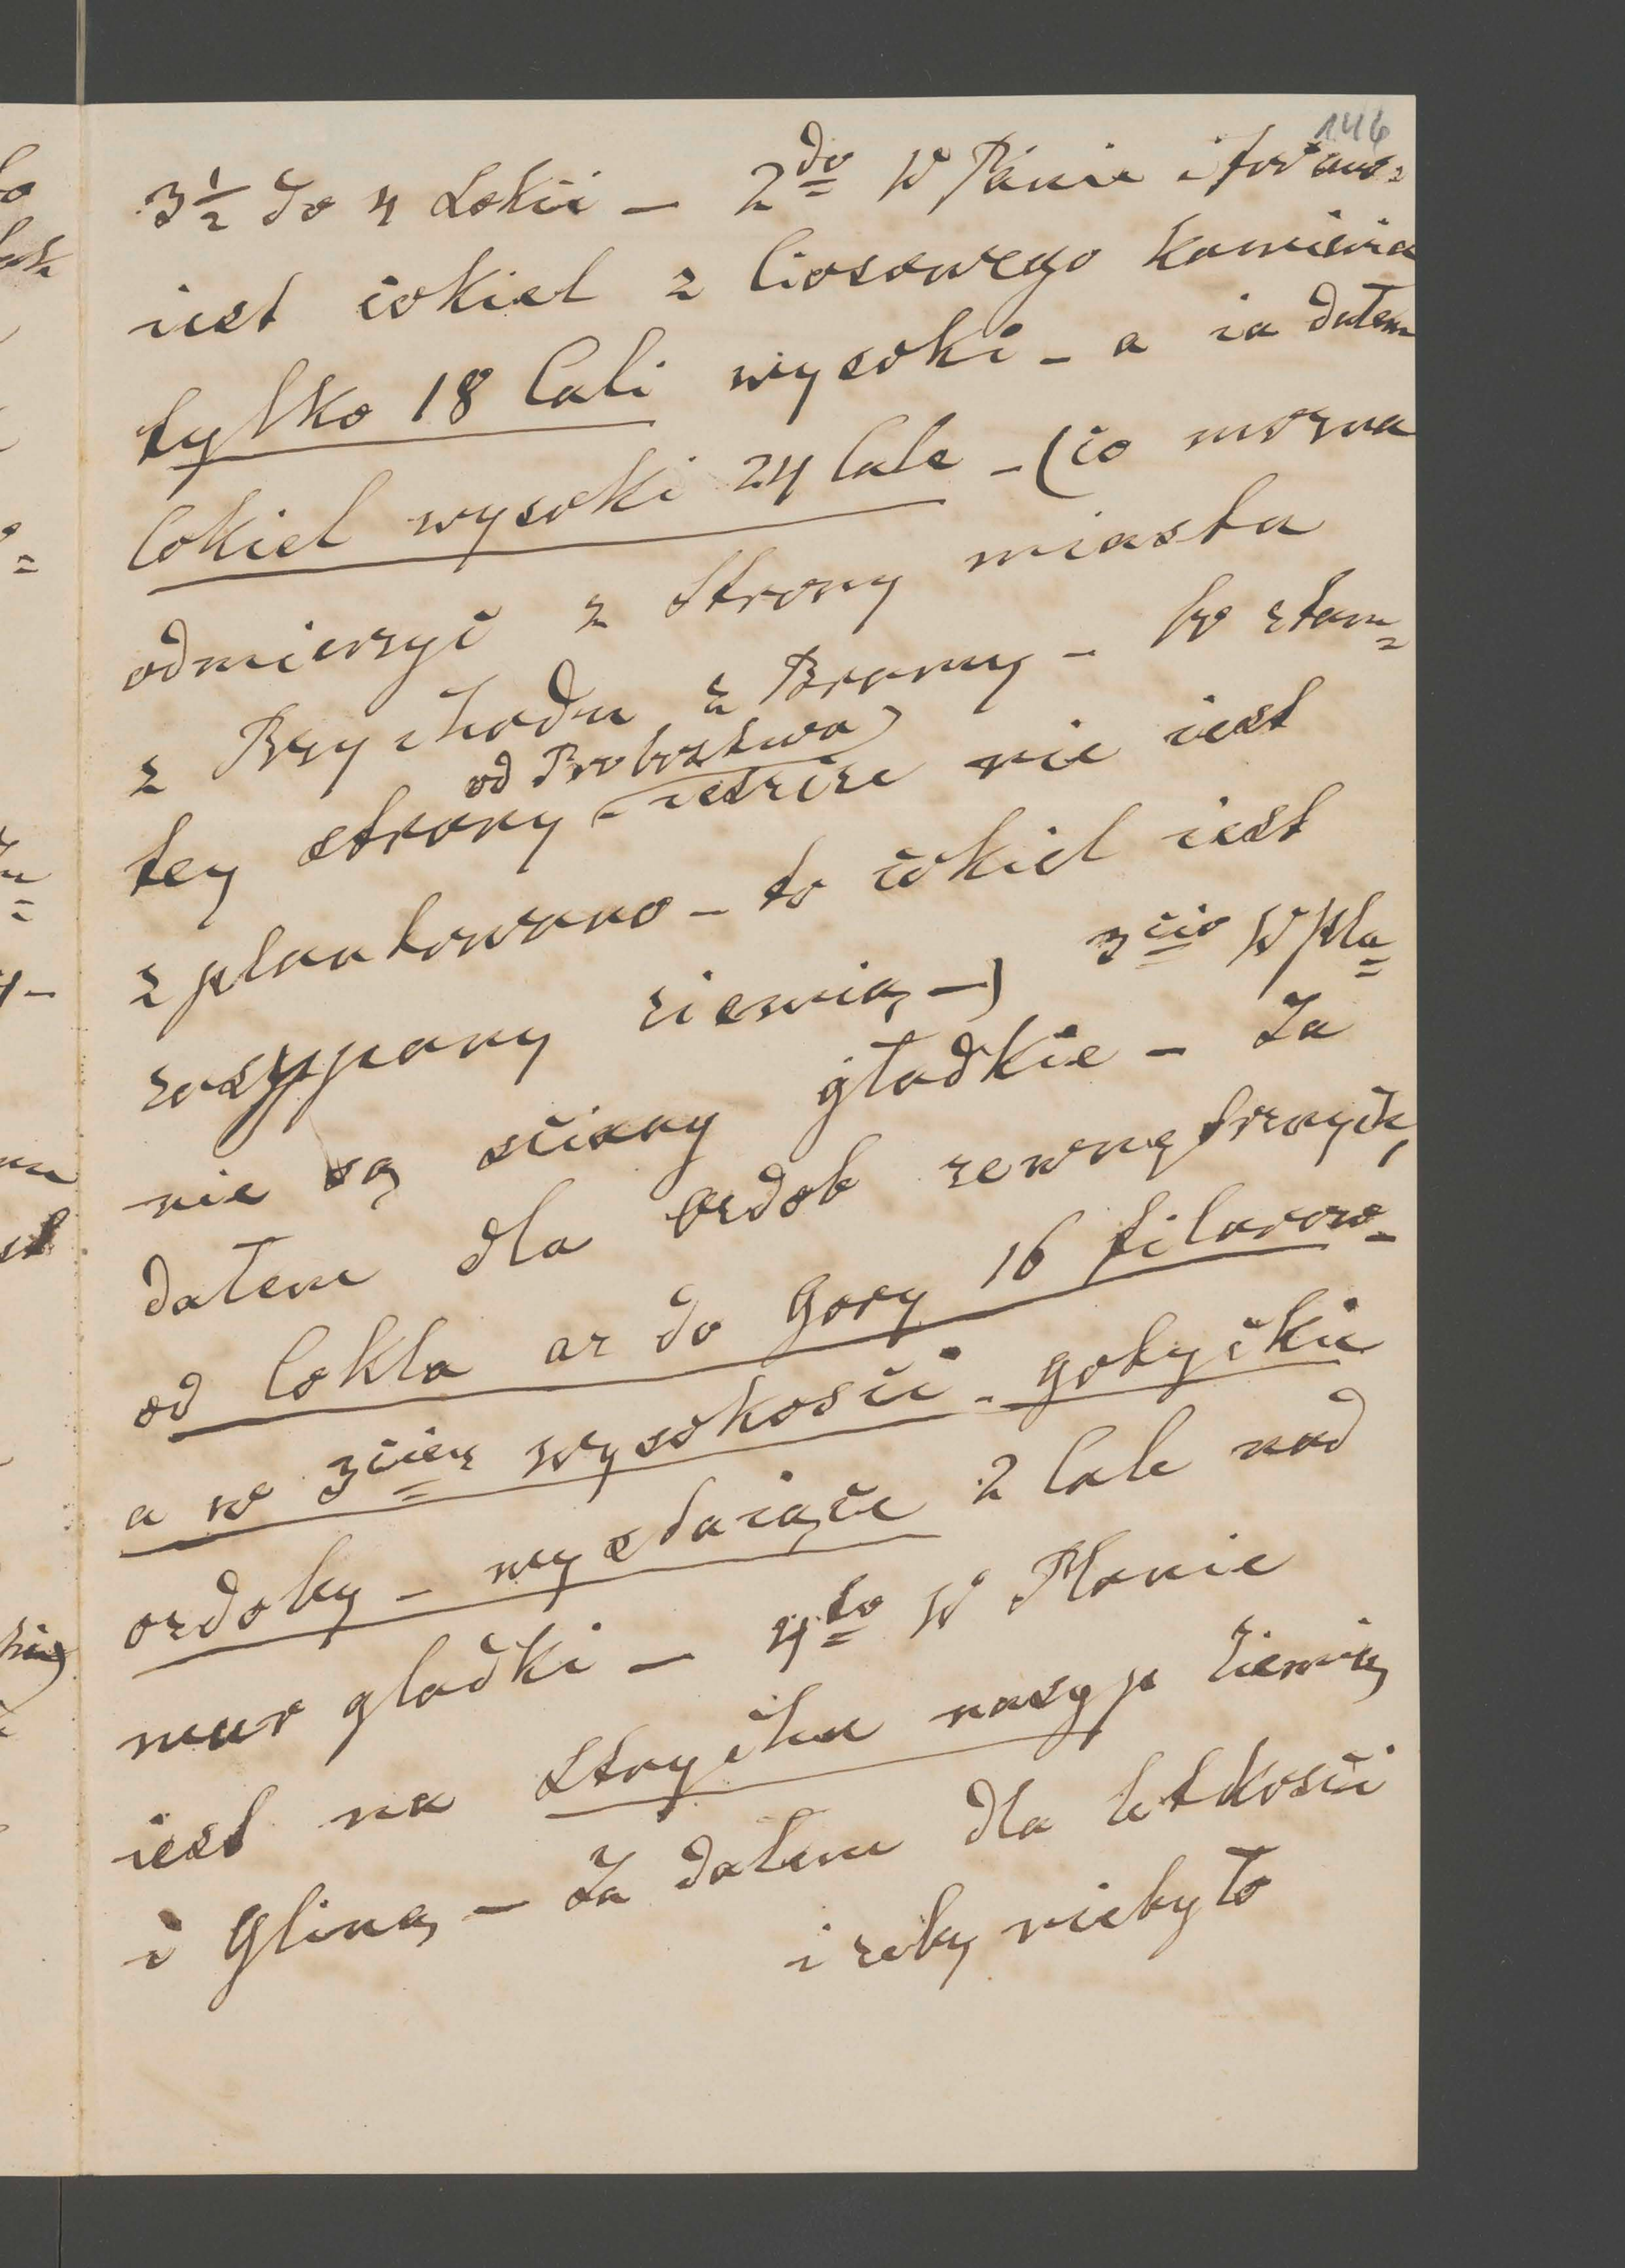 146
3½ do 4 Łokci – 2do W Planie
iest cokiel z Ciosowego kamienia
tylko 18 Cali wysoki – a ia dałem
Cokiel wysoki 24 Cale – (co mozna
odmierzyć z Strony miasta
z Przychodu z Bramy – bo z tam=
tey strony – ieszcze nie iest
od Probostwa)
zplantowano – to cokiel iest
zasypany ziemią –) 3cio W Pla=
nie są sciany gładkie – Ja
dałem dla ozdob zewnętrznych,
od Cokla az do Gory 16 filarow –
a w 3ciey wysokości – gotyckie
ozdoby – wystaiące 2 Cale nad
mur gladki – 4to W Planie
iest na Strychu nasyp ziemią
i Gliną – Ja dałem dla letkosci
i zeby niebyło